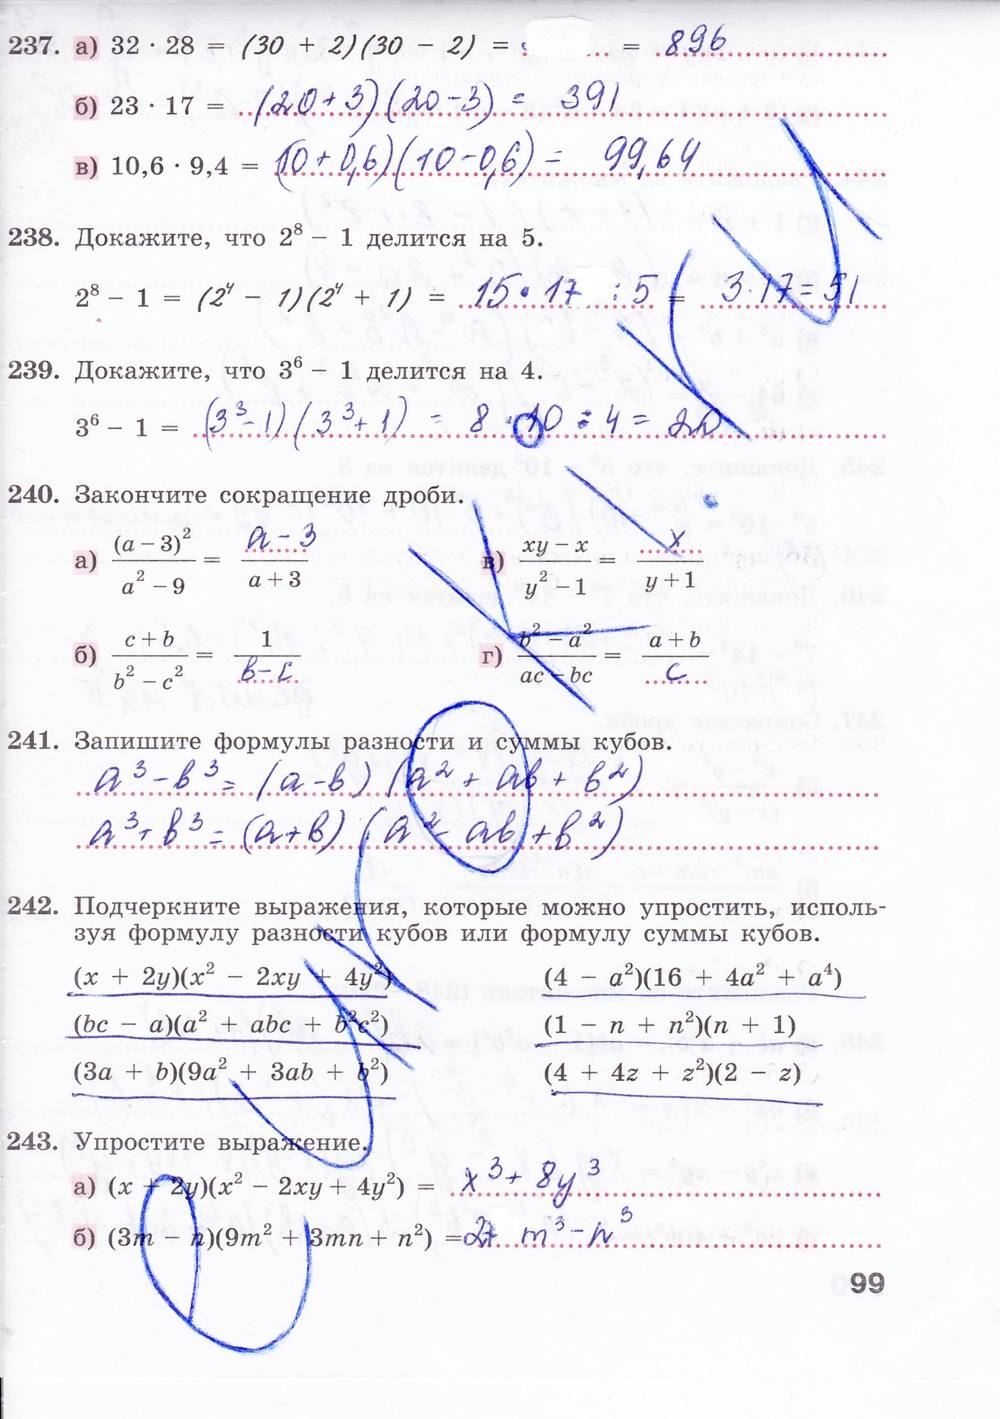 237. а) 32 · 28 = (30 + 2)(30 − 2) = = 896
б) 23 · 17 = (20+3)(20−3) = 391
в) 10,6 · 9,4 = (10+0,6)(10−0,6) = 99,64
238. Докажите, что 2⁸ − 1 делится на 5.
2⁸ − 1 = (2⁴ − 1)(2⁴ + 1) = 15·17 : 5 = 3·17=51
239. Докажите, что 3⁶ − 1 делится на 4.
3⁶ − 1 = (3³−1)(3³+1) = 8 · 10 : 4 = 20
240. Закончите сокращение дроби.
а) (a − 3)² / a² − 9 = a − 3 / a + 3
в) xy − x / y² − 1 = x / y + 1
б) c + b / b² − c² = 1 / b−c
г) b² − a² / ac − bc = a + b / c
241. Запишите формулы разности и суммы кубов.
a³ − b³ = (a − b) (a² + ab + b²)
a³ + b³ = (a+b) (a² − ab + b²)
242. Подчеркните выражения, которые можно упростить, исполь-
зуя формулу разности кубов или формулу суммы кубов.
(x + 2y)(x² − 2xy + 4y²) (4 − a²)(16 + 4a² + a⁴)
(bc − a)(a² + abc + b²c²) (1 − n + n²)(n + 1)
(3a + b)(9a² + 3ab + b²) (4 + 4z + z²)(2 − z)
243. Упростите выражение.
а) (x + 2y)(x² − 2xy + 4y²) = x³ + 8y³
б) (3m − n)(9m² + 3mn + n²) = 27 m³ − n³
99